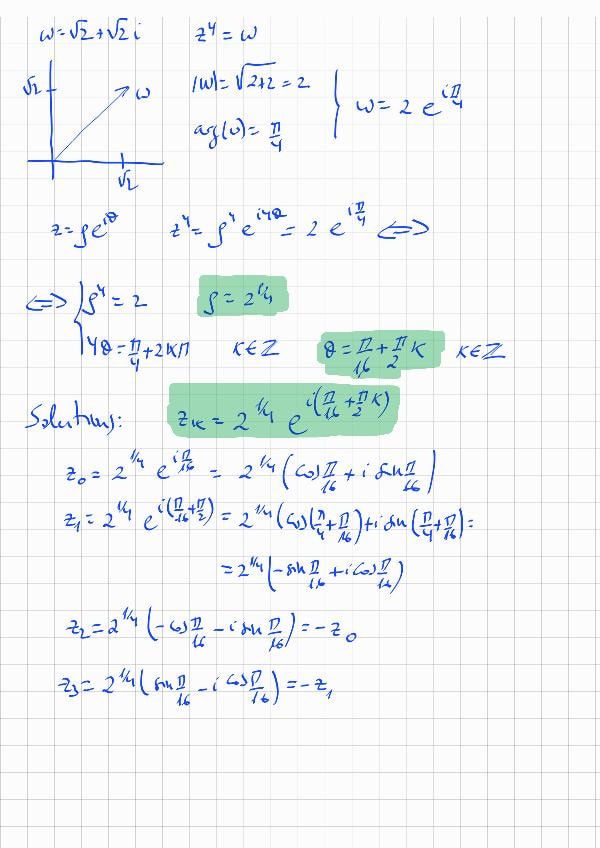 w = √2 + √2 i z⁴ = w
√2 w |w| = √(2+2) = 2
arg(w) = π/4 } w = 2 e^(iπ/4)
√2
z = ρe^(iθ) z⁴ = ρ⁴ e^(i4θ) = 2 e^(iπ/4) ⇔
⇔ { ρ⁴ = 2 ρ = 2^(1/4)
4θ = π/4 + 2kπ k∈ℤ θ = π/16 + π/2 k k∈ℤ
Solutions: z_k = 2^(1/4) e^(i(π/16 + π/2 k))
z₀ = 2^(1/4) e^(iπ/16) = 2^(1/4) (cos π/16 + i sin π/16)
z₁ = 2^(1/4) e^(i(π/16 + π/2)) = 2^(1/4) (cos(π/4 + π/16) + i sin(π/4 + π/16) =
= 2^(1/4) (-sin π/16 + i cos π/16)
z₂ = 2^(1/4) (-cos π/16 - i sin π/16) = -z₀
z₃ = 2^(1/4) (sin π/16 - i cos π/16) = -z₁